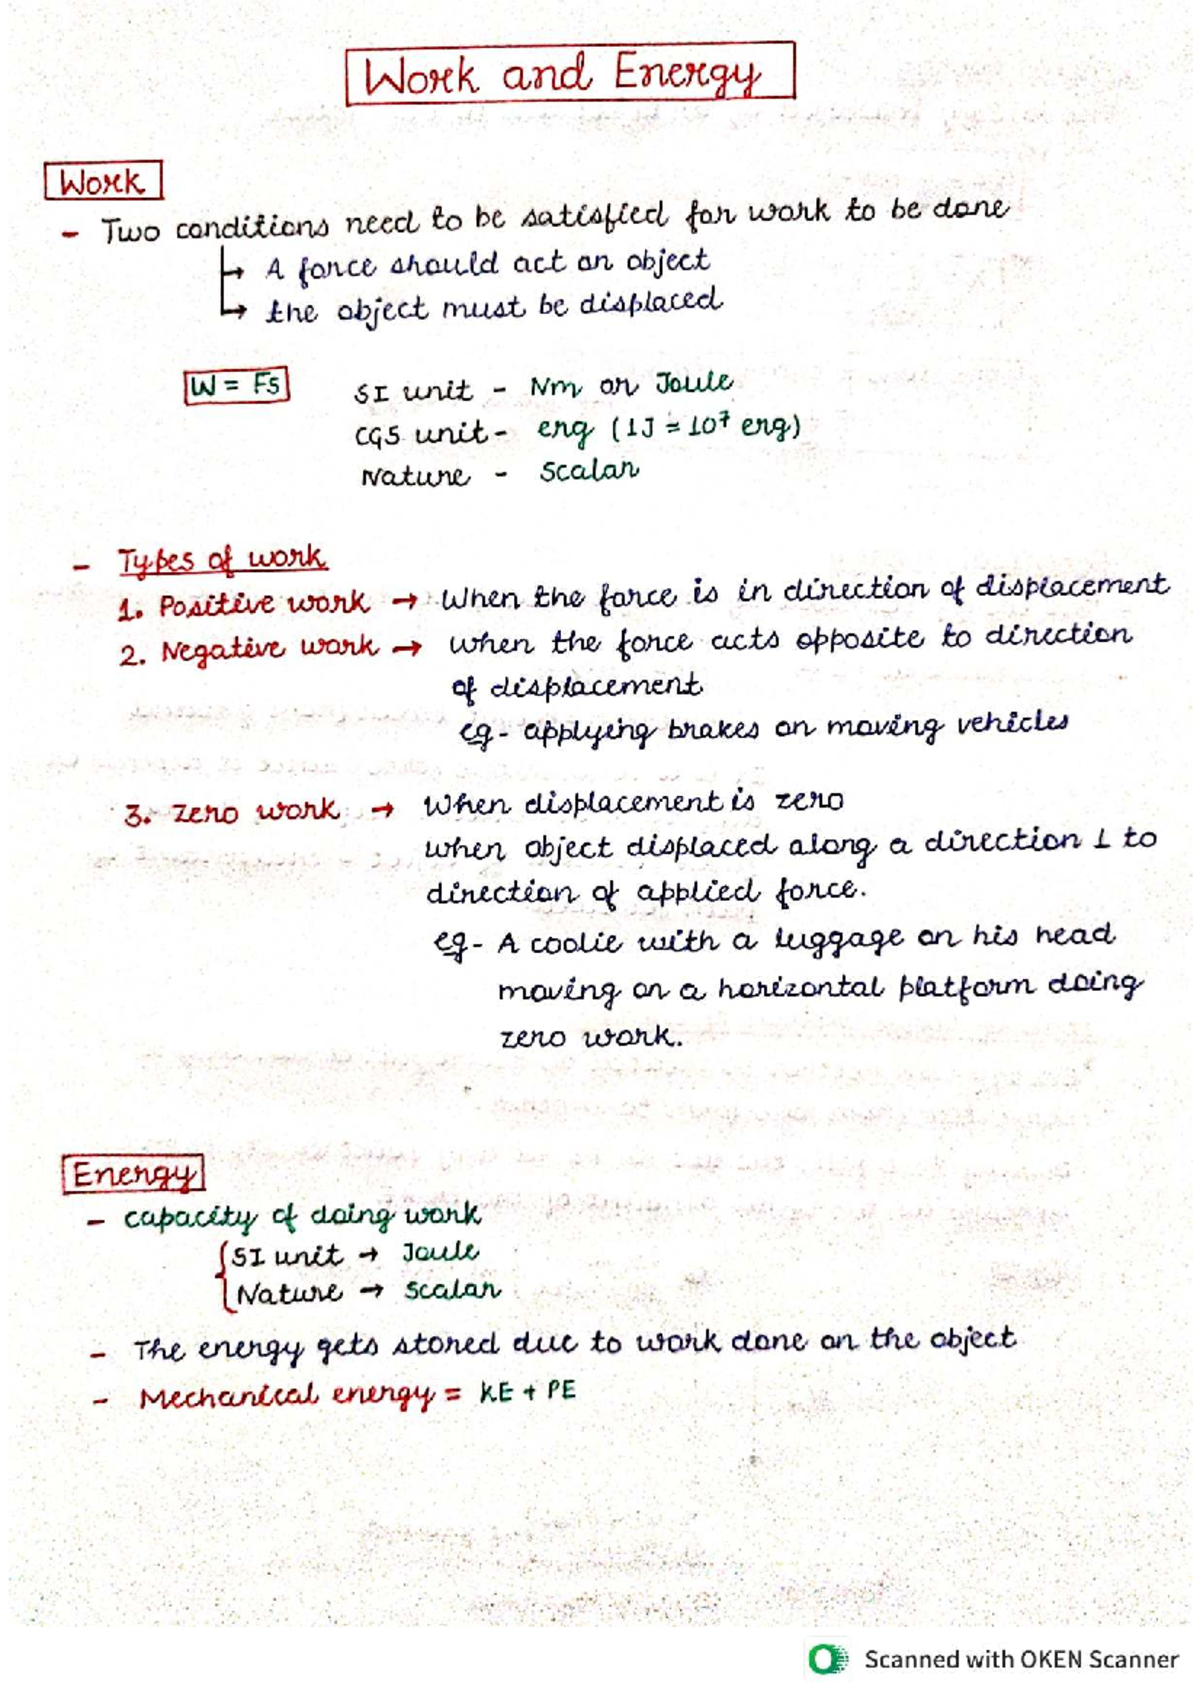 Work and Energy
Work
- Two conditions need to be satisfied for work to be done
↳ A force should act on object
↳ the object must be displaced
W = Fs
SI unit - Nm or Joule
CGS unit - erg (1J = 10⁷ erg)
Nature - Scalar
- Types of work
1. Positive work → When the force is in direction of displacement
2. Negative work → when the force acts opposite to direction
of displacement
eg - applying brakes on moving vehicles
3. Zero work → When displacement is zero
when object displaced along a direction ⊥ to
direction of applied force.
eg - A coolie with a luggage on his head
moving on a horizontal platform doing
zero work.
Energy
- capacity of doing work
SI unit → Joule
Nature → Scalar
- The energy gets stored due to work done on the object
- Mechanical energy = KE + PE
Scanned with OKEN Scanner